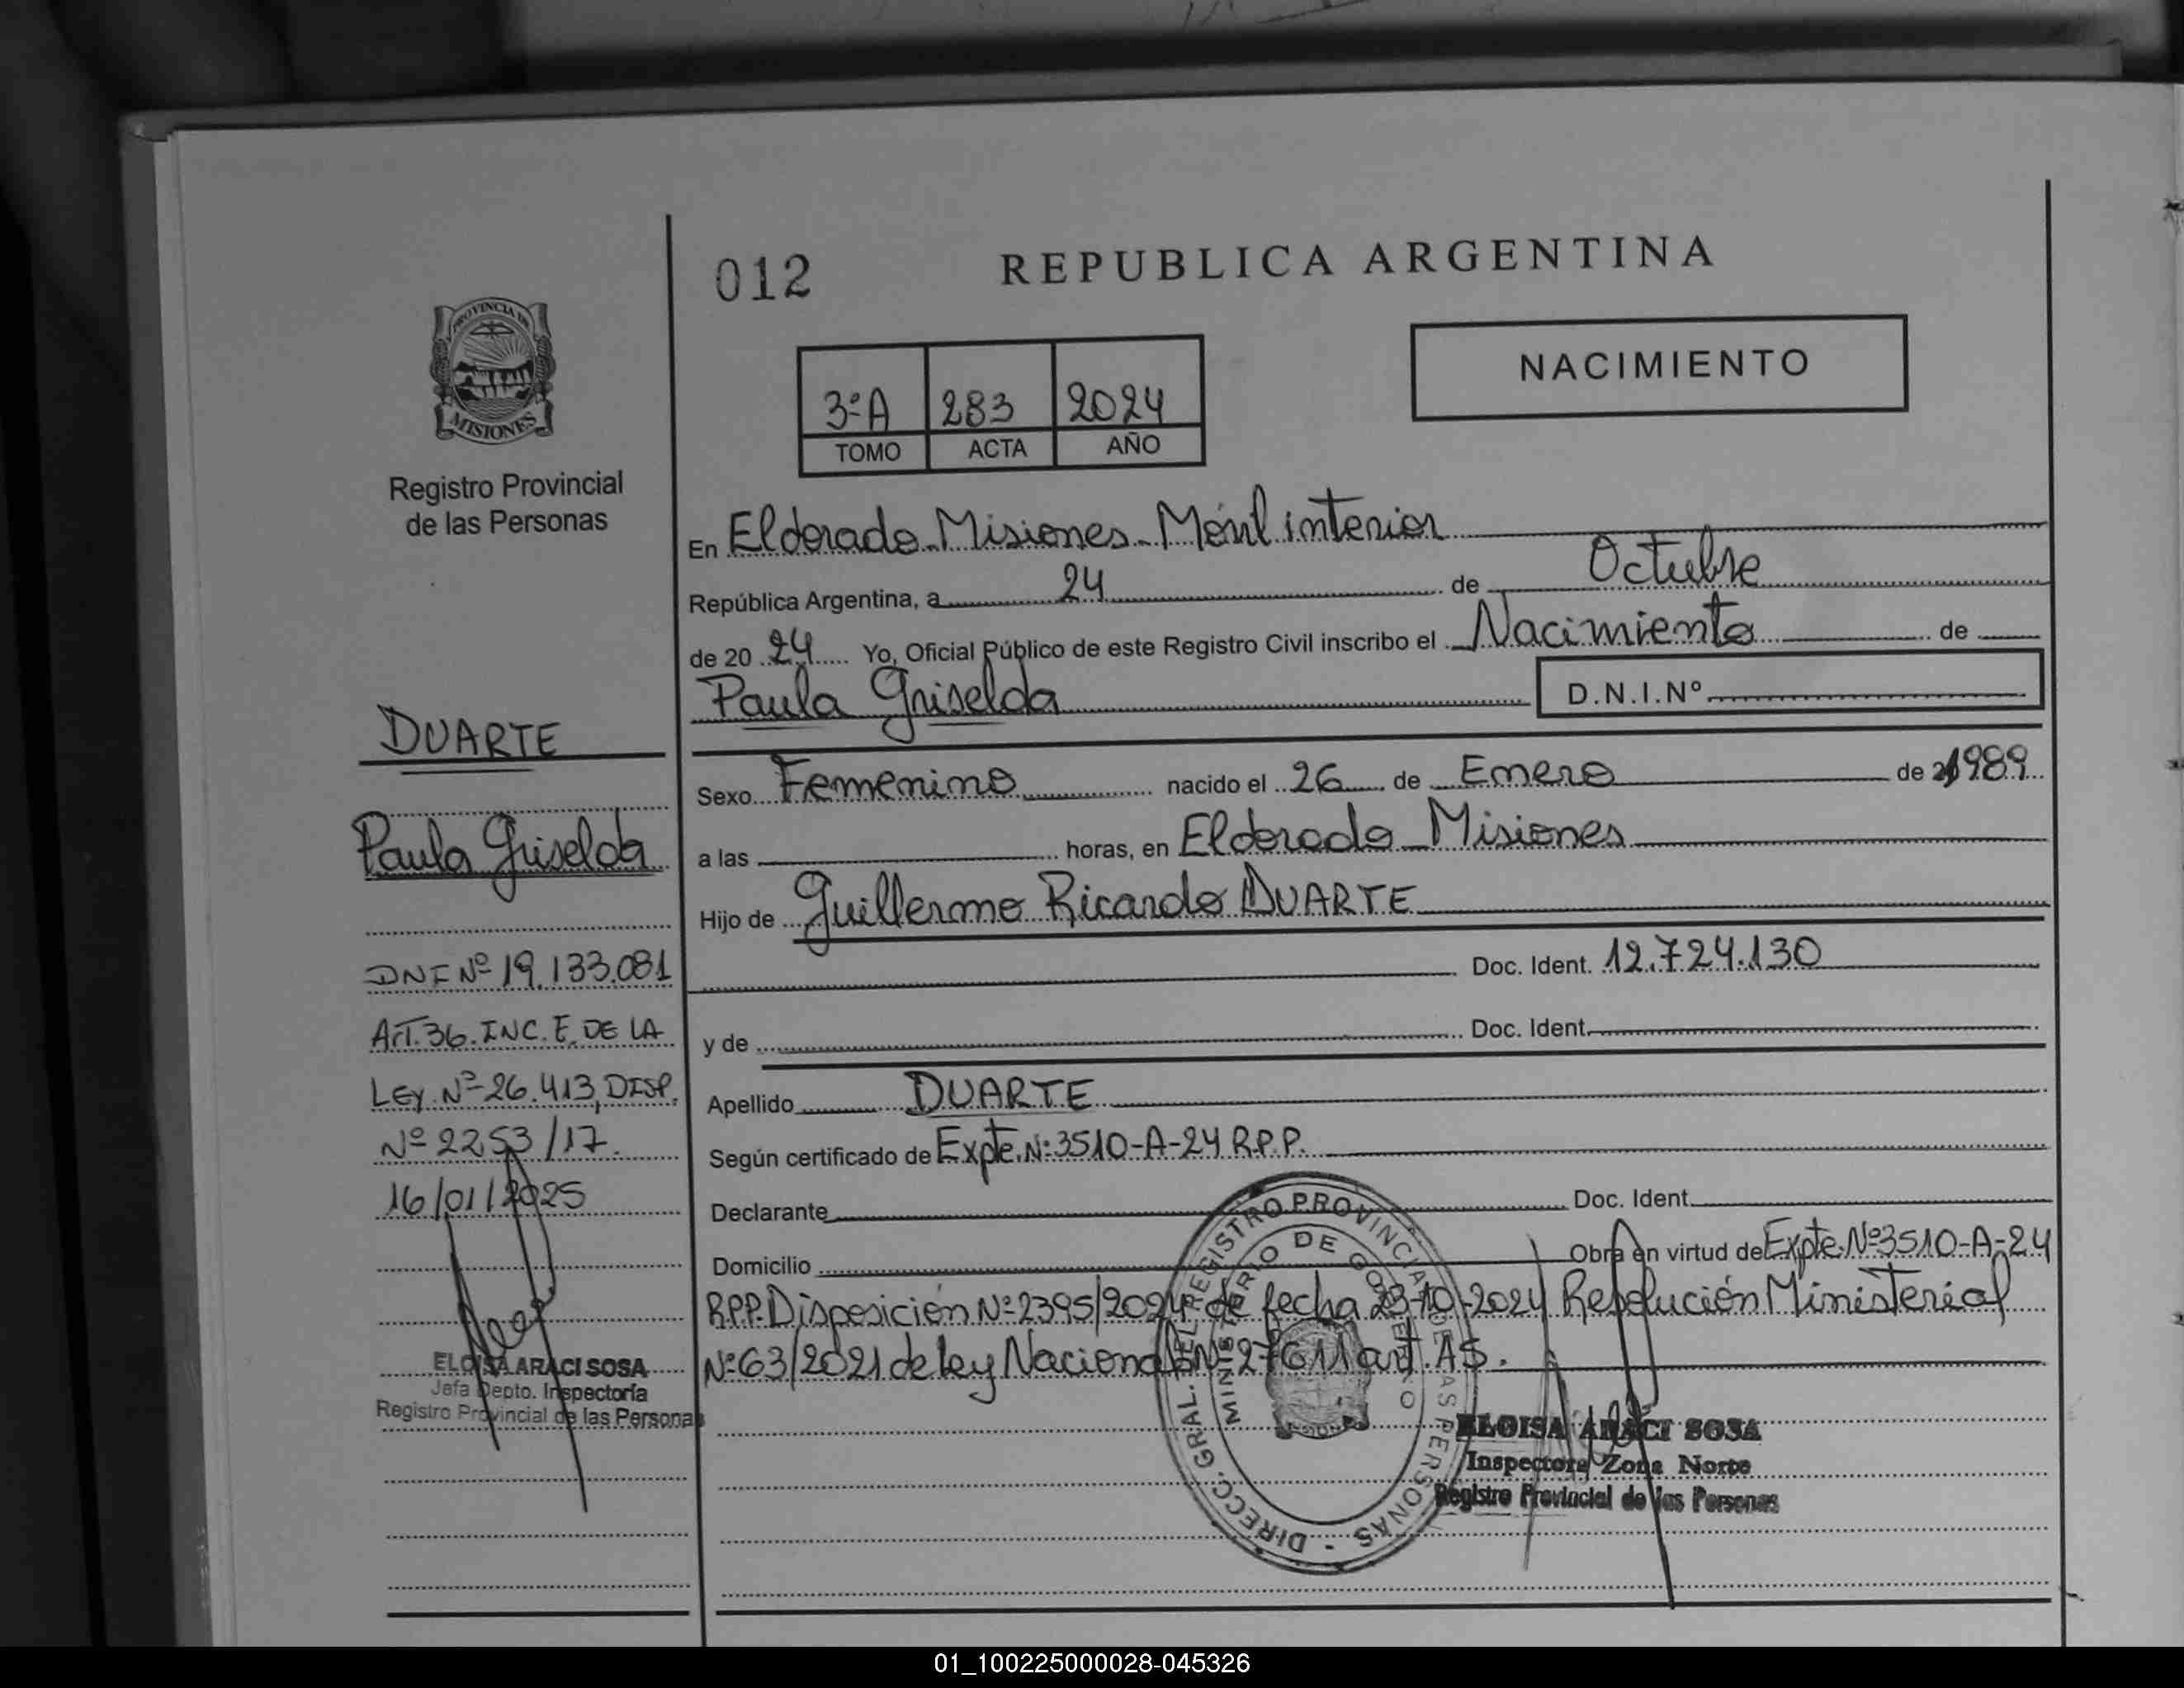 012
REPUBLICA ARGENTINA
PROVINCIA DE
MISIONES
Registro Provincial
de las Personas
3ºA 283 2024
TOMO ACTA AÑO
NACIMIENTO
En Eldorado Misiones Móvil interior
República Argentina, a 24 de Octubre
de 20 24 Yo, Oficial Público de este Registro Civil inscribo el Nacimiento de
Paula Griselda
D.N.I.Nº
DUARTE
Paula Griselda
DNI Nº 19.133.081
Art.36.INC.E.DE LA
Ley Nº 26.413, DISP.
Nº 2253/17.
16/01/2025
ELOISA ARACI SOSA
Jefa Depto. Inspectoría
Registro Provincial de las Personas
Sexo Femenino nacido el 26 de Enero de 1989
a las horas, en Eldorado Misiones
Hijo de Guillermo Ricardo DUARTE
Doc. Ident. 12.724.130
y de Doc. Ident.
Apellido DUARTE
Según certificado de Expte.Nº:3510-A-24 R.P.P.
Declarante Doc. Ident.
Domicilio Obra en virtud de Expte.Nº3510-A-24
R.P.P. Disposición Nº2395/2024 de fecha 23-10-2024 Resolución Ministerial
Nº63/2021 de ley Nacional Nº 27611 art.
DIRECC. GRAL. DEL REGISTRO PROVINCIAL DE LAS PERSONAS -
MINISTERIO DE GOBIERNO
ELOISA ARACI SOSA
Inspectora Zona Norte
Registro Provincial de las Personas
01_100225000028-045326